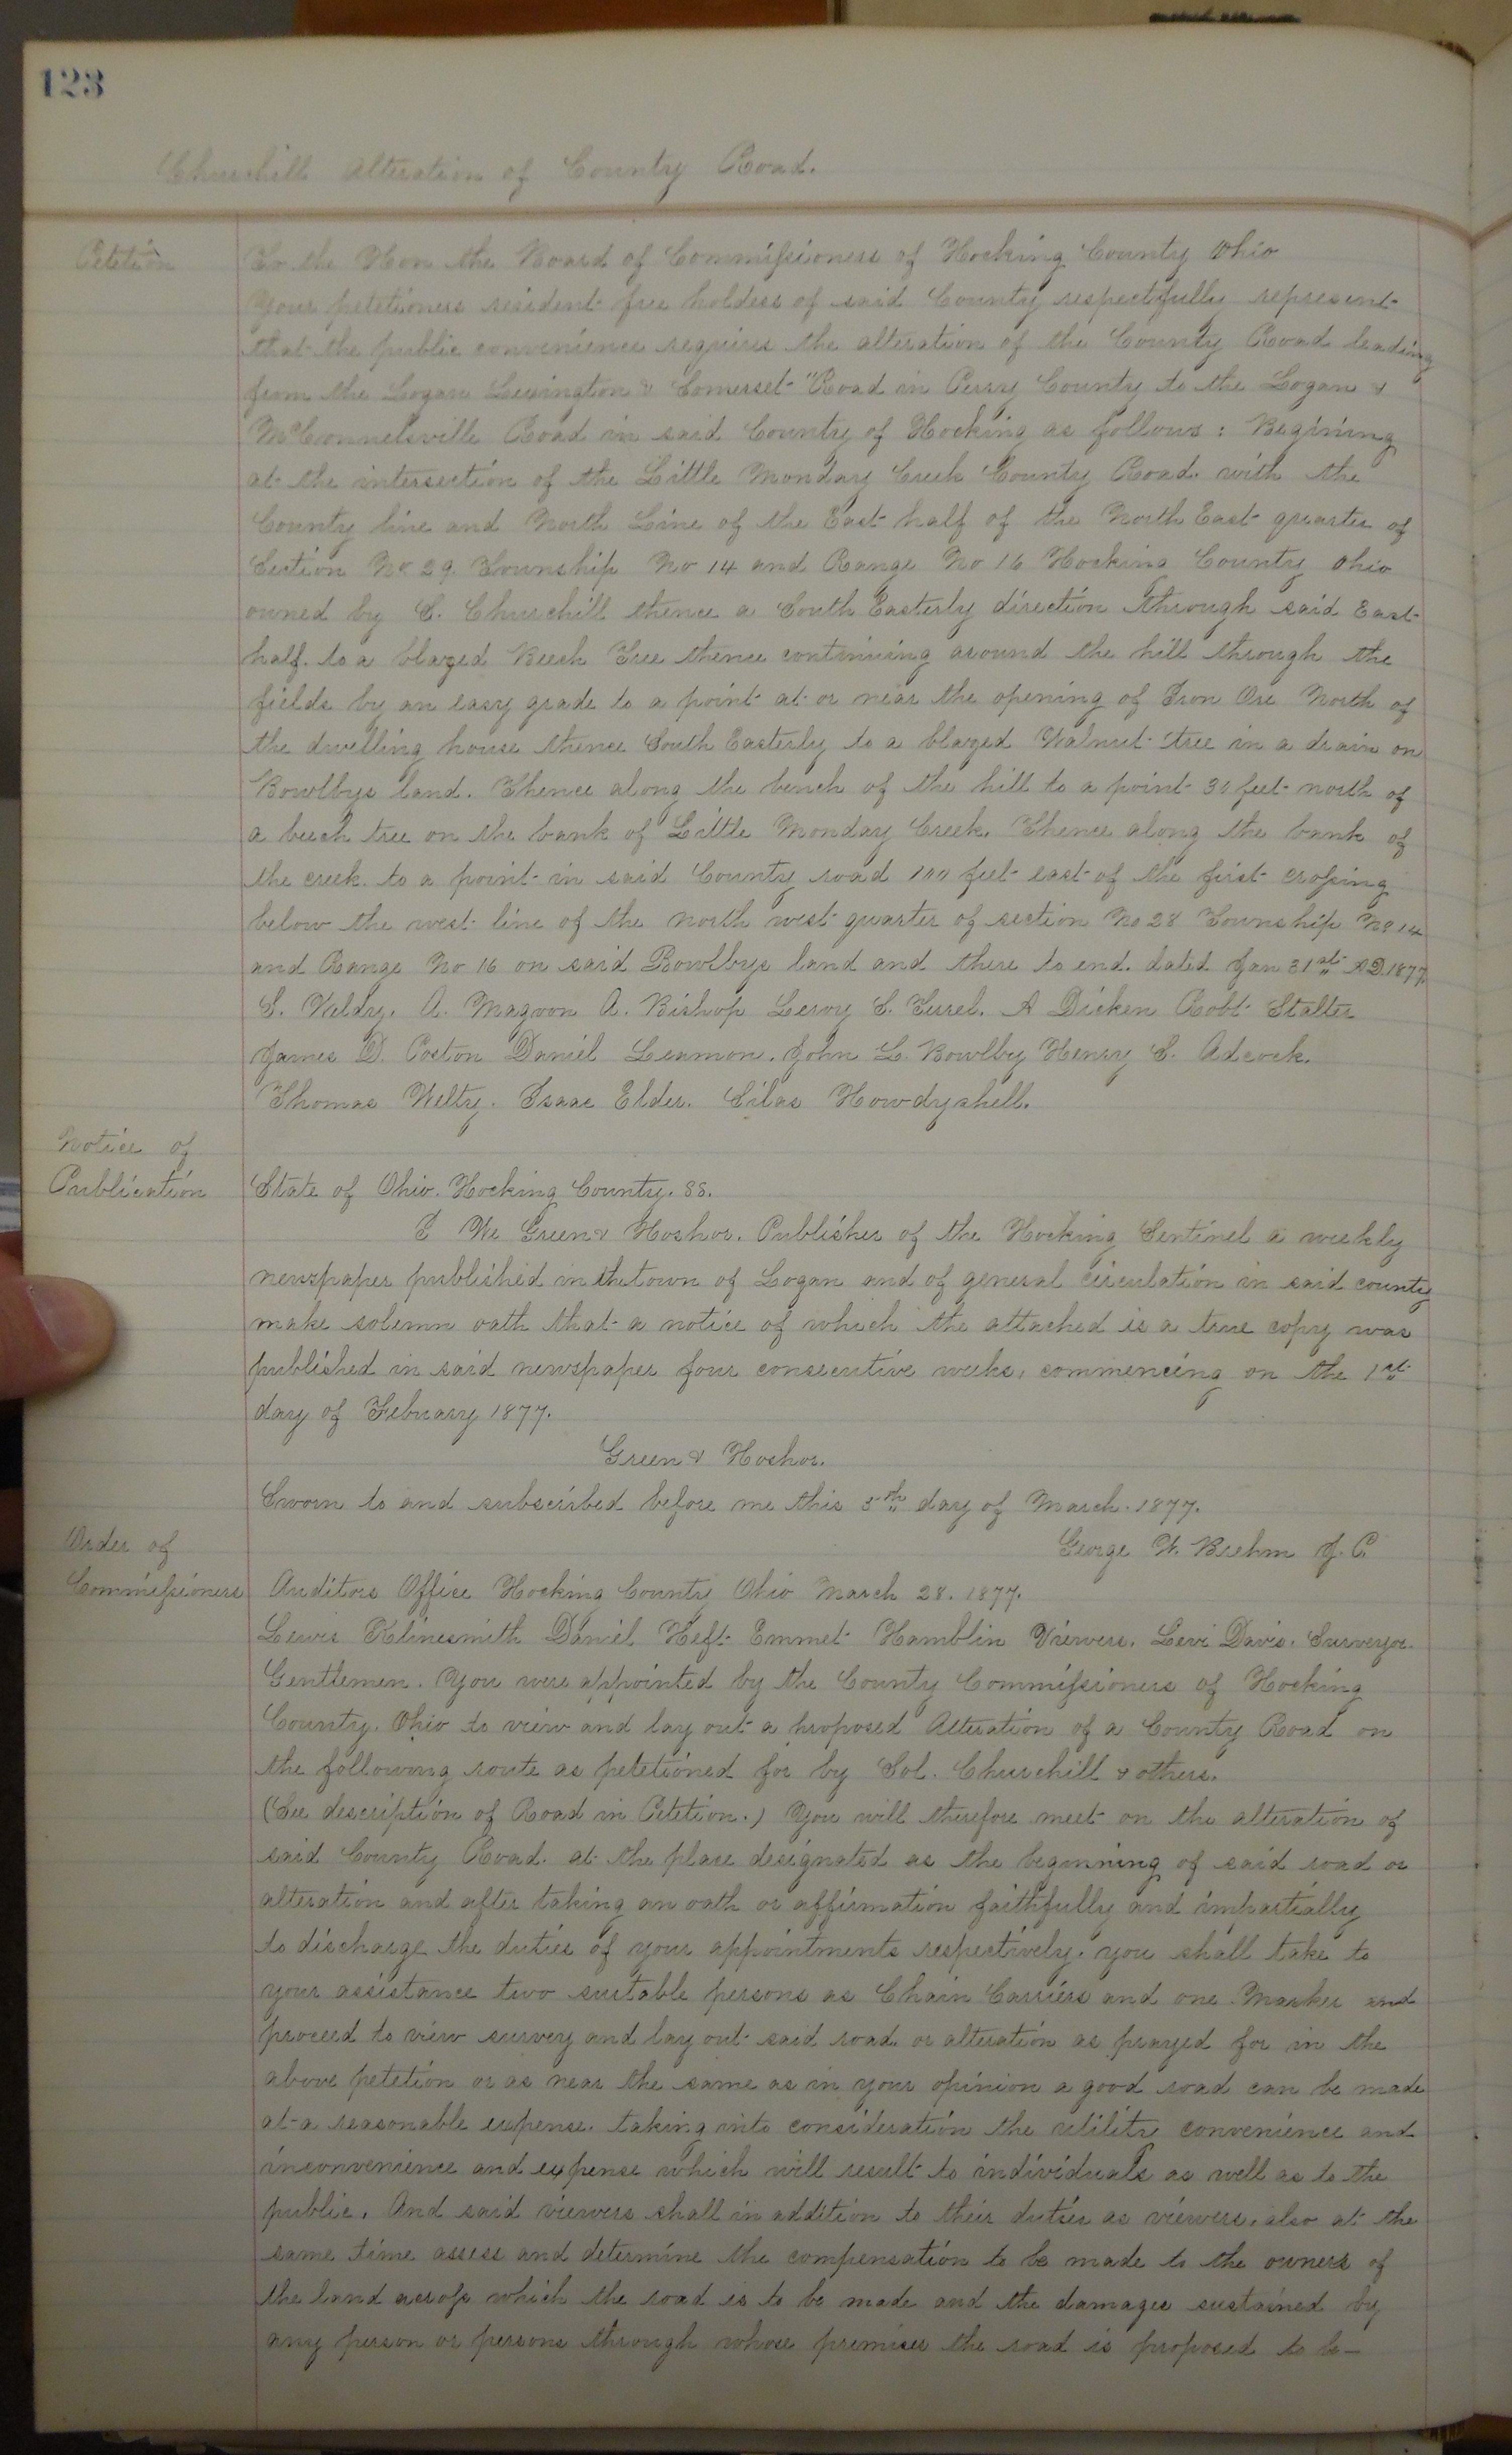 123
Churchill Alteration of County Road.
Petetion
To the Hon the Board of Commissioners of Hocking County Ohio
Your petetioners resident free holders of said County respectfully represent
that the public convenience requires the alteration of the County Road leading
from the Logan Lexington & Somerset "Road in Perry County to the Logan &
McConnelsville Road in said County of Hocking as follows: Begining
at the intersection of the Little Monday Creek County Road with the
County line and North Line of the East half of the North East quarter of
Section No 29. Township No 14 and Range No 16 Hocking County Ohio
owned by S. Churchill thence a South Easterly direction through said East
half. to a blazed Beech Tree thence continuing around the hill through the
fields by an easy grade to a point at or near the opening of Iron Ore North of
the dwelling house thence South Easterly to a blazed Walnut tree in a drain on
Bowlbys land. Thence along the bench of the hill to a point 30 feet north of
a beech tree on the bank of Little Monday Creek. Thence along the bank of
the creek. to a point in said County road 100 feet east of the first crossing
below the west line of the north west quarter of section No 28 Township No 14
and Range No 16 on said Bowlbys land and there to end. dated Jan 31st A.D. 1877.
S. Weldy. A. Magoon A. Bishop Leroy S. A Dicken Robt Stalter
James D. Poston Daniel Leamon. John L. Bowlby Henry S. Adcock.
Thomas Welty. Isaac Elder. Silas Howdyshell.
Notice of
Publication
State of Ohio. Hocking County. SS.
I We Green & Hoshor. Publisher of the Hocking Sentinel a weekly
newspaper published in the town of Logan and of general circulation in said county
make solemn oath that a notice of which the attached is a true copy was
published in said newspaper four consecutive weeks, commencing on the 1st
day of February 1877.
Green & Hoshor.
Sworn to and subscribed before me this 5th day of March. 1877.
George W. Brehm J. P.
Order of
Commissioners
Auditors Office Hocking County Ohio March 28. 1877.
Lewis Klinesmith Daniel Heft Emmet Hamblin Viewers. Levi Davis. Surveyor.
Gentlemen. You were appointed by the County Commissioners of Hocking
County. Ohio to view and lay out a proposed Alteration of a County Road on
the following route as petetioned for by Sol. Churchill & others.
(See description of Road in Petetion.) You will therefore meet on the alteration of
said County Road. at the place designated as the beginning of said road or
alteration and after taking an oath or affirmation faithfully and impartially
to discharge the duties of your appointments respectively. you shall take to
your assistance two suitable persons as Chain Carriers and one Marker and
proceed to view survey and lay out said road. or alteration as prayed for in the
above petetion or as near the same as in your opinion a good road can be made
at a reasonable expense. taking into consideration the utility convenience and
inconvenience and expense which will result to individuals as well as to the
public. And said viewers shall in addition to their duties as viewers. also at the
same time assess and determine the compensation to be made to the owners of
the land across which the road is to be made and the damages sustained by
any person or persons through whose premises the road is proposed to be—